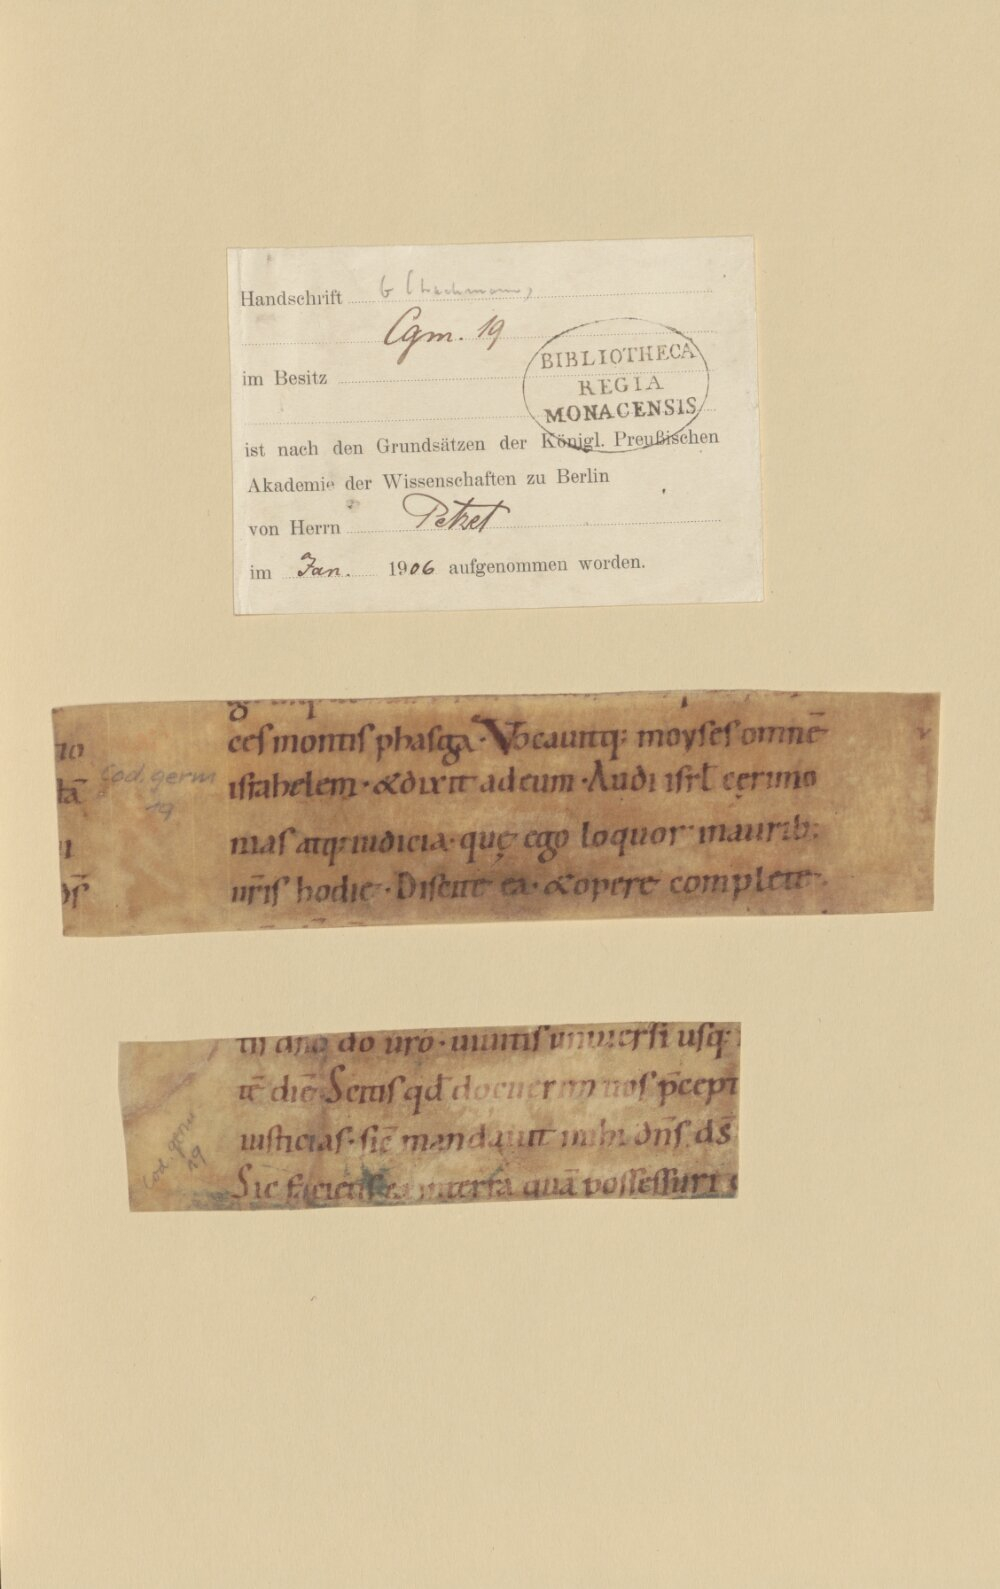 Handschrift G (Lachmann)
Cgm. 19
im Besitz
BIBLIOTHECA
REGIA
MONACENSIS
ist nach den Grundsätzen der Königl. Preußischen
Akademie der Wissenschaften zu Berlin
von Herrn Petzet
im Jan. 1906 aufgenommen worden.
no
tā
Cod. germ
19
ces montis phasga · Vocauitq; moyses omnē
israhelem · & dixit ad eum · Audi isrł cęrimo
nias atq; iudicia · quę ego loquor in aurib;
ur̄is hodie · Discite ea · & opere complete ·
dn̄o do uro · uiuitis uniuersi usq;
tē diē Scitis qđ docuerim uos p̄cept
iusticias · sic̄ mandauit mihi dn̄s ds̄
Sic facietis ea in terra quā possessuri
Cod. germ
19